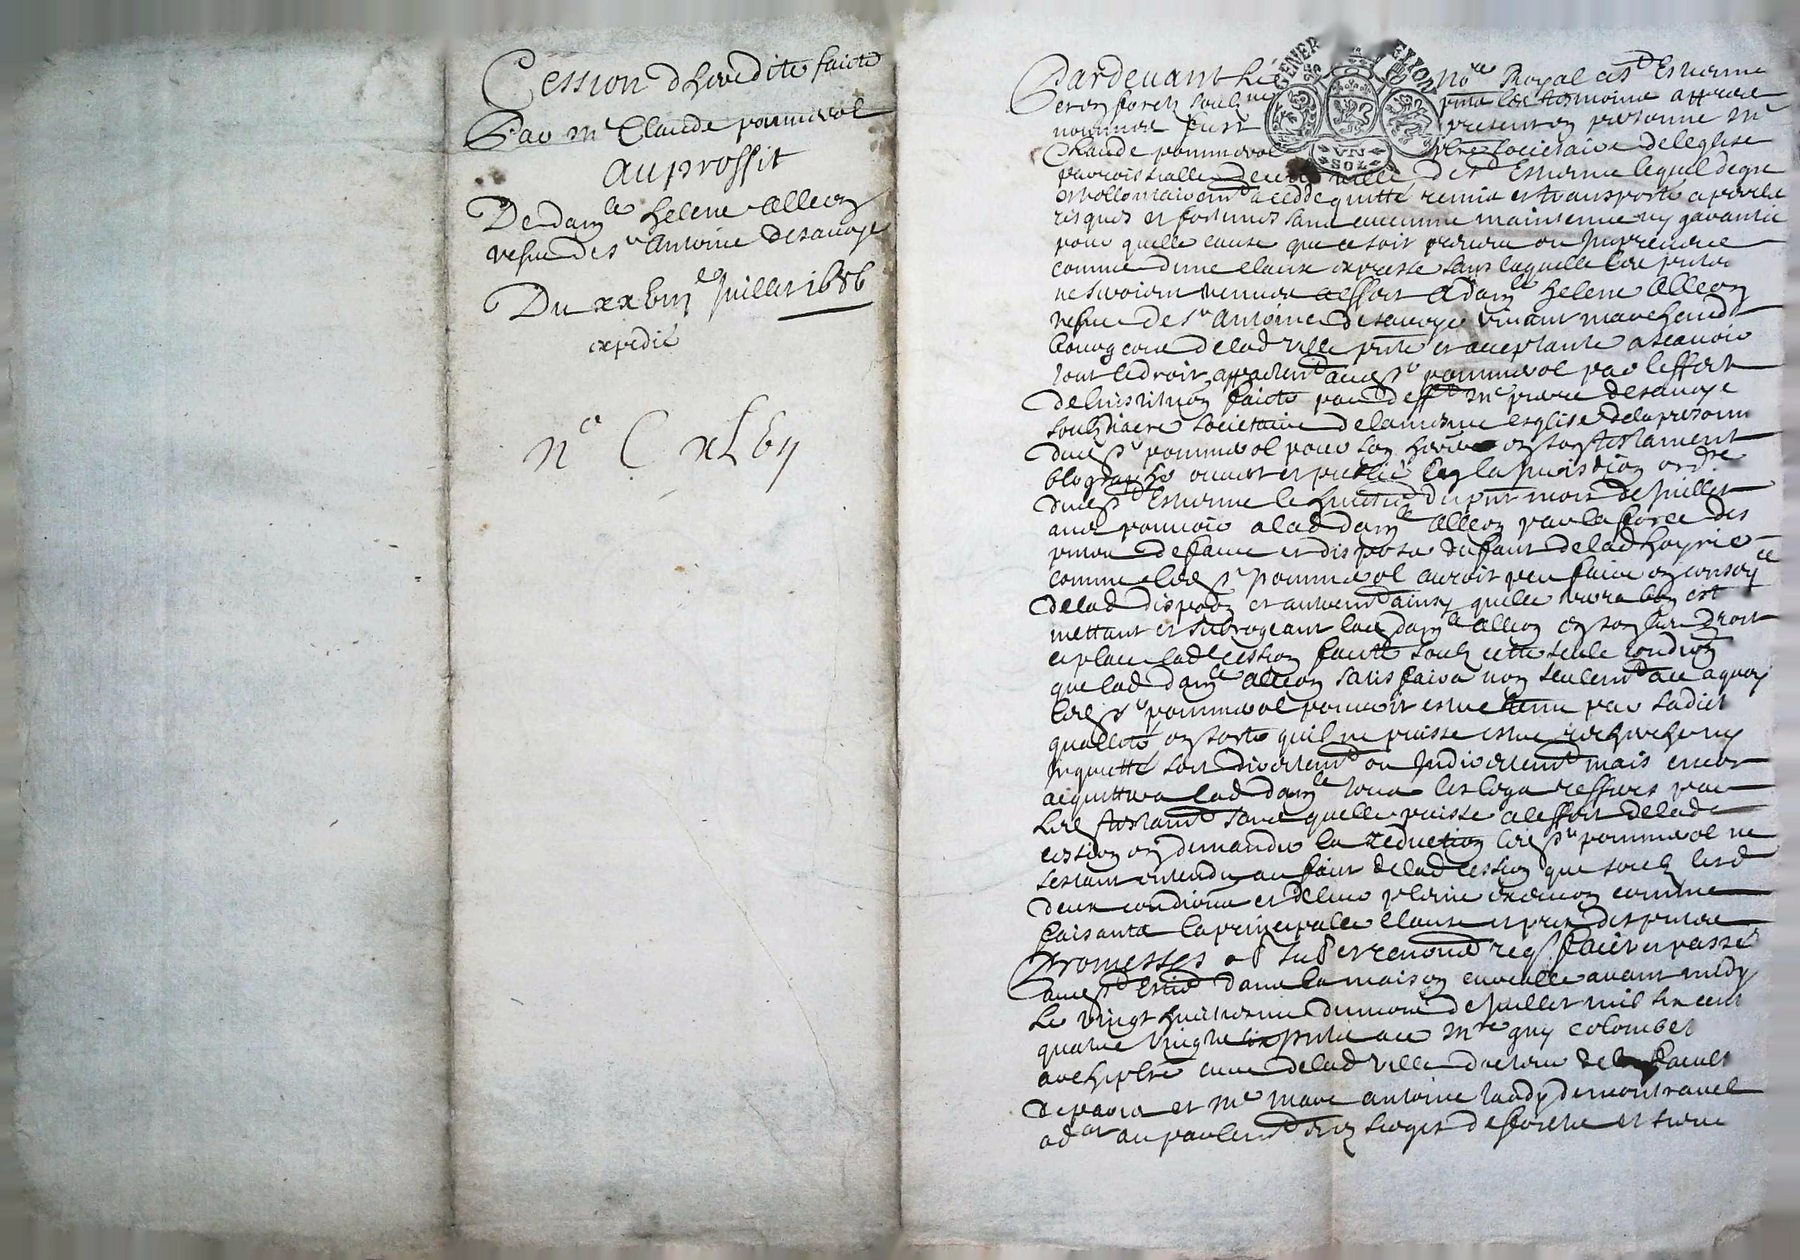 Cession dheredite faicte
Par Mr Claude pommerol
au proffit
De damlle helene alleon
vefue de sr antoine desauoye
Du xxbiije Juillet 1686
expedié
ne C xlbij
GENER LYON
VN
SOL
Pardeuant le nore Royal a st Estienne
en forestz soubzne et en presence des tesmoins appres
nommes fust present en personne mre
Claude pommerol pbre societaire de leglise
parroissialle de cette ville de st Estienne lequel de gre
et vollontairemt a cedde quitté remis et transporté a perils
risques et fortunes sans aucunne maintenue ny garantie
pour quelle cause que ce soit preueue ou Impreueue
comme dune clause expresse sans laquelle les pntes
ne seroient venues a effect a damlle helene alleon
vefue de sr antoine desauoye viuant marchand
bourgeois de lad ville pnte et acceptante a scauoir
tout le droit appartent aud sr pommerol par leffect
de linstitution faicte par defft mre pierre desauoye
soubzdiacre societaire de la mesme esglise de la personne
dud sr pommerol pour son heritier en son testament
olographe ouuert et publié en la Jurisdion ordre
dud st Estienne le huictie du pnt mois de Juillet
auec pouuoir a lad damlle alleon par la force des
pntes de faire et disposer du faict de lad hoyrie
comme led sr pommerol auroit peu faire en conseqce
de lad dispoon et autremt ainsy quelle verra bon est
mettant et subrogeant lad damlle alleon en son lieu droit
et place lad cession faicte soubz cette seule condion
que lad damlle alleon satisfaira non seulemt a ce a quoy
led sr pommerol pourroit estre tenu par sadict
quallité en sorte quil ne puisse estre recherché ny
Inquietté soit directemt ou Indirectemt mais encor
acquittera lad damlle tous les legs reffers par
led testamt sans quelle puisse a leffect de lad
cession en demander la reduction led sr pommerol ne
sestant entendu au faict de lad cession que soubz lesd
deux condions et de leur pleine execuon comme
faisants la principalle clause et prix des pntes
Promesses obl sub et renonons req faict et passé
aud st Estne dans la maison curialle auant midy
le vingt huictiesme du mois de Juillet mil six cent
quatre vingts six pnts a ce mre guy colombet
archiptre curé de lad ville docteur de la faculté
de paris et mre marc antoine raudy de montrauel
adat au parlemt et ez sieges de forestz et sieur